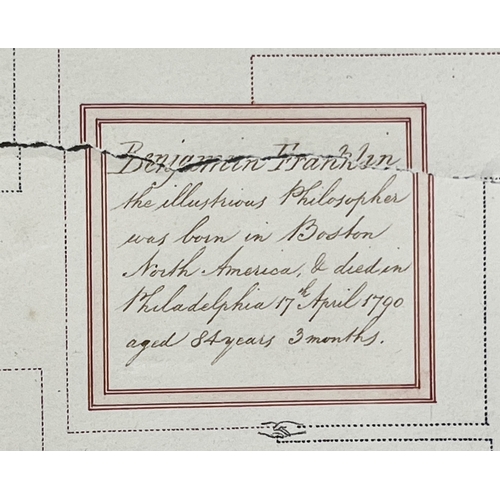 Benjamin Franklin
the illustrious Philosopher
was born in Boston
North America, & died in
Philadelphia 17th April 1790
aged 84 years 3 months.